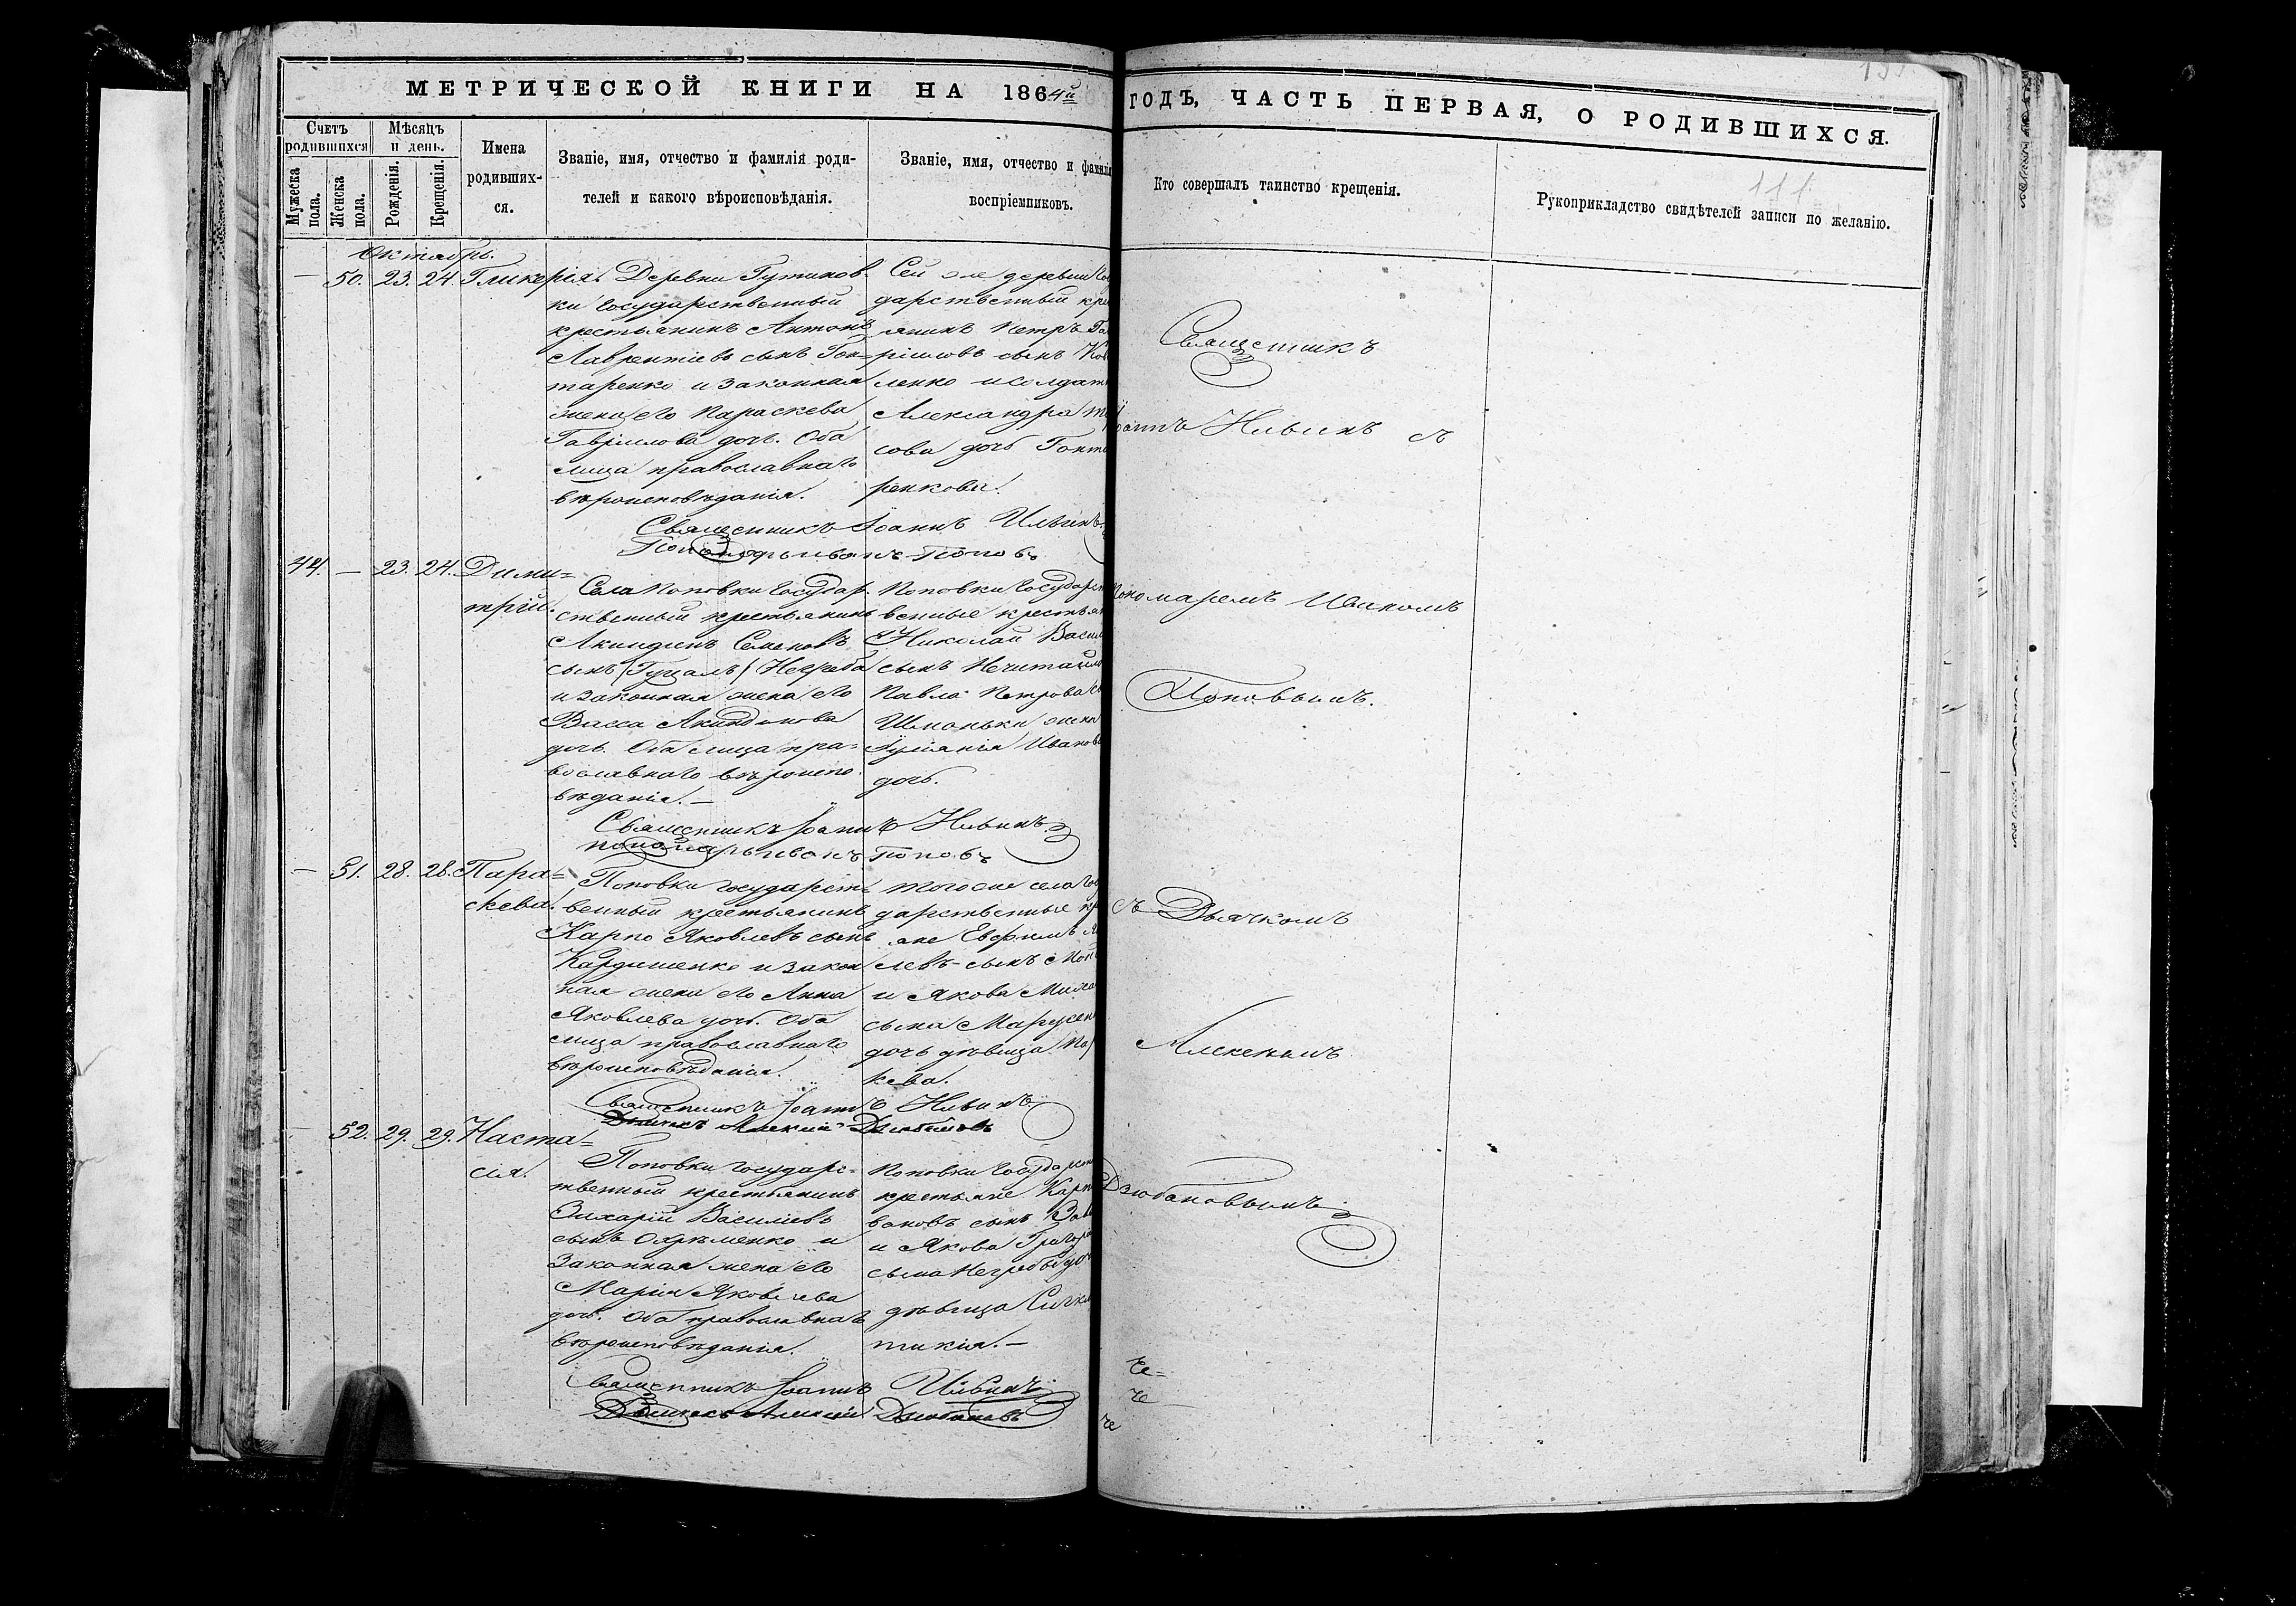 МЕТРИЧЕСКОЙ КНИГИ НА 1864й ГОДЪ, ЧАСТЬ ПЕРВАЯ, О РОДИВШИХСЯ.
Счетъ родившихся
Мужеска пола.
Женска пола.
Мѣсяцъ и день.
Рожденія.
Крещенія.
Имена
родивших-
ся.
Званіе, имя, отчество и фамилія роди-
телей и какого вѣроисповѣданія.
Званіе, имя, отчество и фамилія
воспріемниковъ.
Кто совершалъ таинство крещенія.
Рукоприкладство свидѣтелей записи по желанію.
Октябрь.
— 50. 23. 24. Гликерія.
Деревни
ки Государственный
крестьянинъ Антонъ
Лаврентіевъ сынъ Гон=
таренко и законная
жена его Параскева
Гавріилова дочь. Оба
лица православнаго
вѣроисповѣданія.
Сей же деревни Го
дарственный кре
янинъ Петръ Га
ріиловъ сынъ Ков
ленко и солдат
Александра
сова дочь Гонта
ренкова.
Священникъ Іоаннъ Ильинъ
Пономарь Иванъ Поповъ
44. — 23. 24. Дими=
трій.
Села Поповки Государ
ственный крестьянинъ
Акиндинъ Семеновъ
сынъ /Гуцалъ/ Негреба
и законная жена его
Васса Акиндинова
дочь. Оба лица пра=
вославнаго вѣроиспо
вѣданія. —
Поповки Государст
венные крестьян
Николай Васил
сынъ Нечитайл
Павла Петрова с
Шмоньки жена
Иванов
дочь.
Священникъ Іоаннъ Ильинъ
Пономарь Иванъ Поповъ
— 51. 28. 28. Пара=
скева.
Поповки Государст=
венный крестьянинъ
Карпо Яковлевъ сынъ
Кардишенко и закон
ная жена его Анна
Яковлева дочь. Оба
лица православнаго
вѣроисповѣданія.
того же села Гос
дарственные кр
яне Евфимъ Я
левъ сынъ Моп
и Якова Миха
сына Марусен
дочь дѣвица Па
кева.
Священникъ Іоаннъ Ильинъ
Дьячекъ Алексій Дзюбановъ
— 52. 29. 29. Наста=
сія.
Поповки Государс=
твенный крестьянинъ
Захарій Василіевъ
сынъ Охрѣменко и
законная жена его
Марія Яковлева
дочь. Оба православнаго
вѣроисповѣданія.
Поповки Государств
крестьяне Карп
вановъ сынъ Зав
и Якова Григорі
сына Негребы доч
дѣвица
тикія. —
Священникъ Іоаннъ Ильинъ
Дьячекъ Алексій Дзюбановъ
Священникъ
Іоаннъ Ильинъ съ
Пономаремъ Иваномъ
Поповымъ.
съ Дьячкомъ
Алексѣемъ
Дзюбановымъ
111